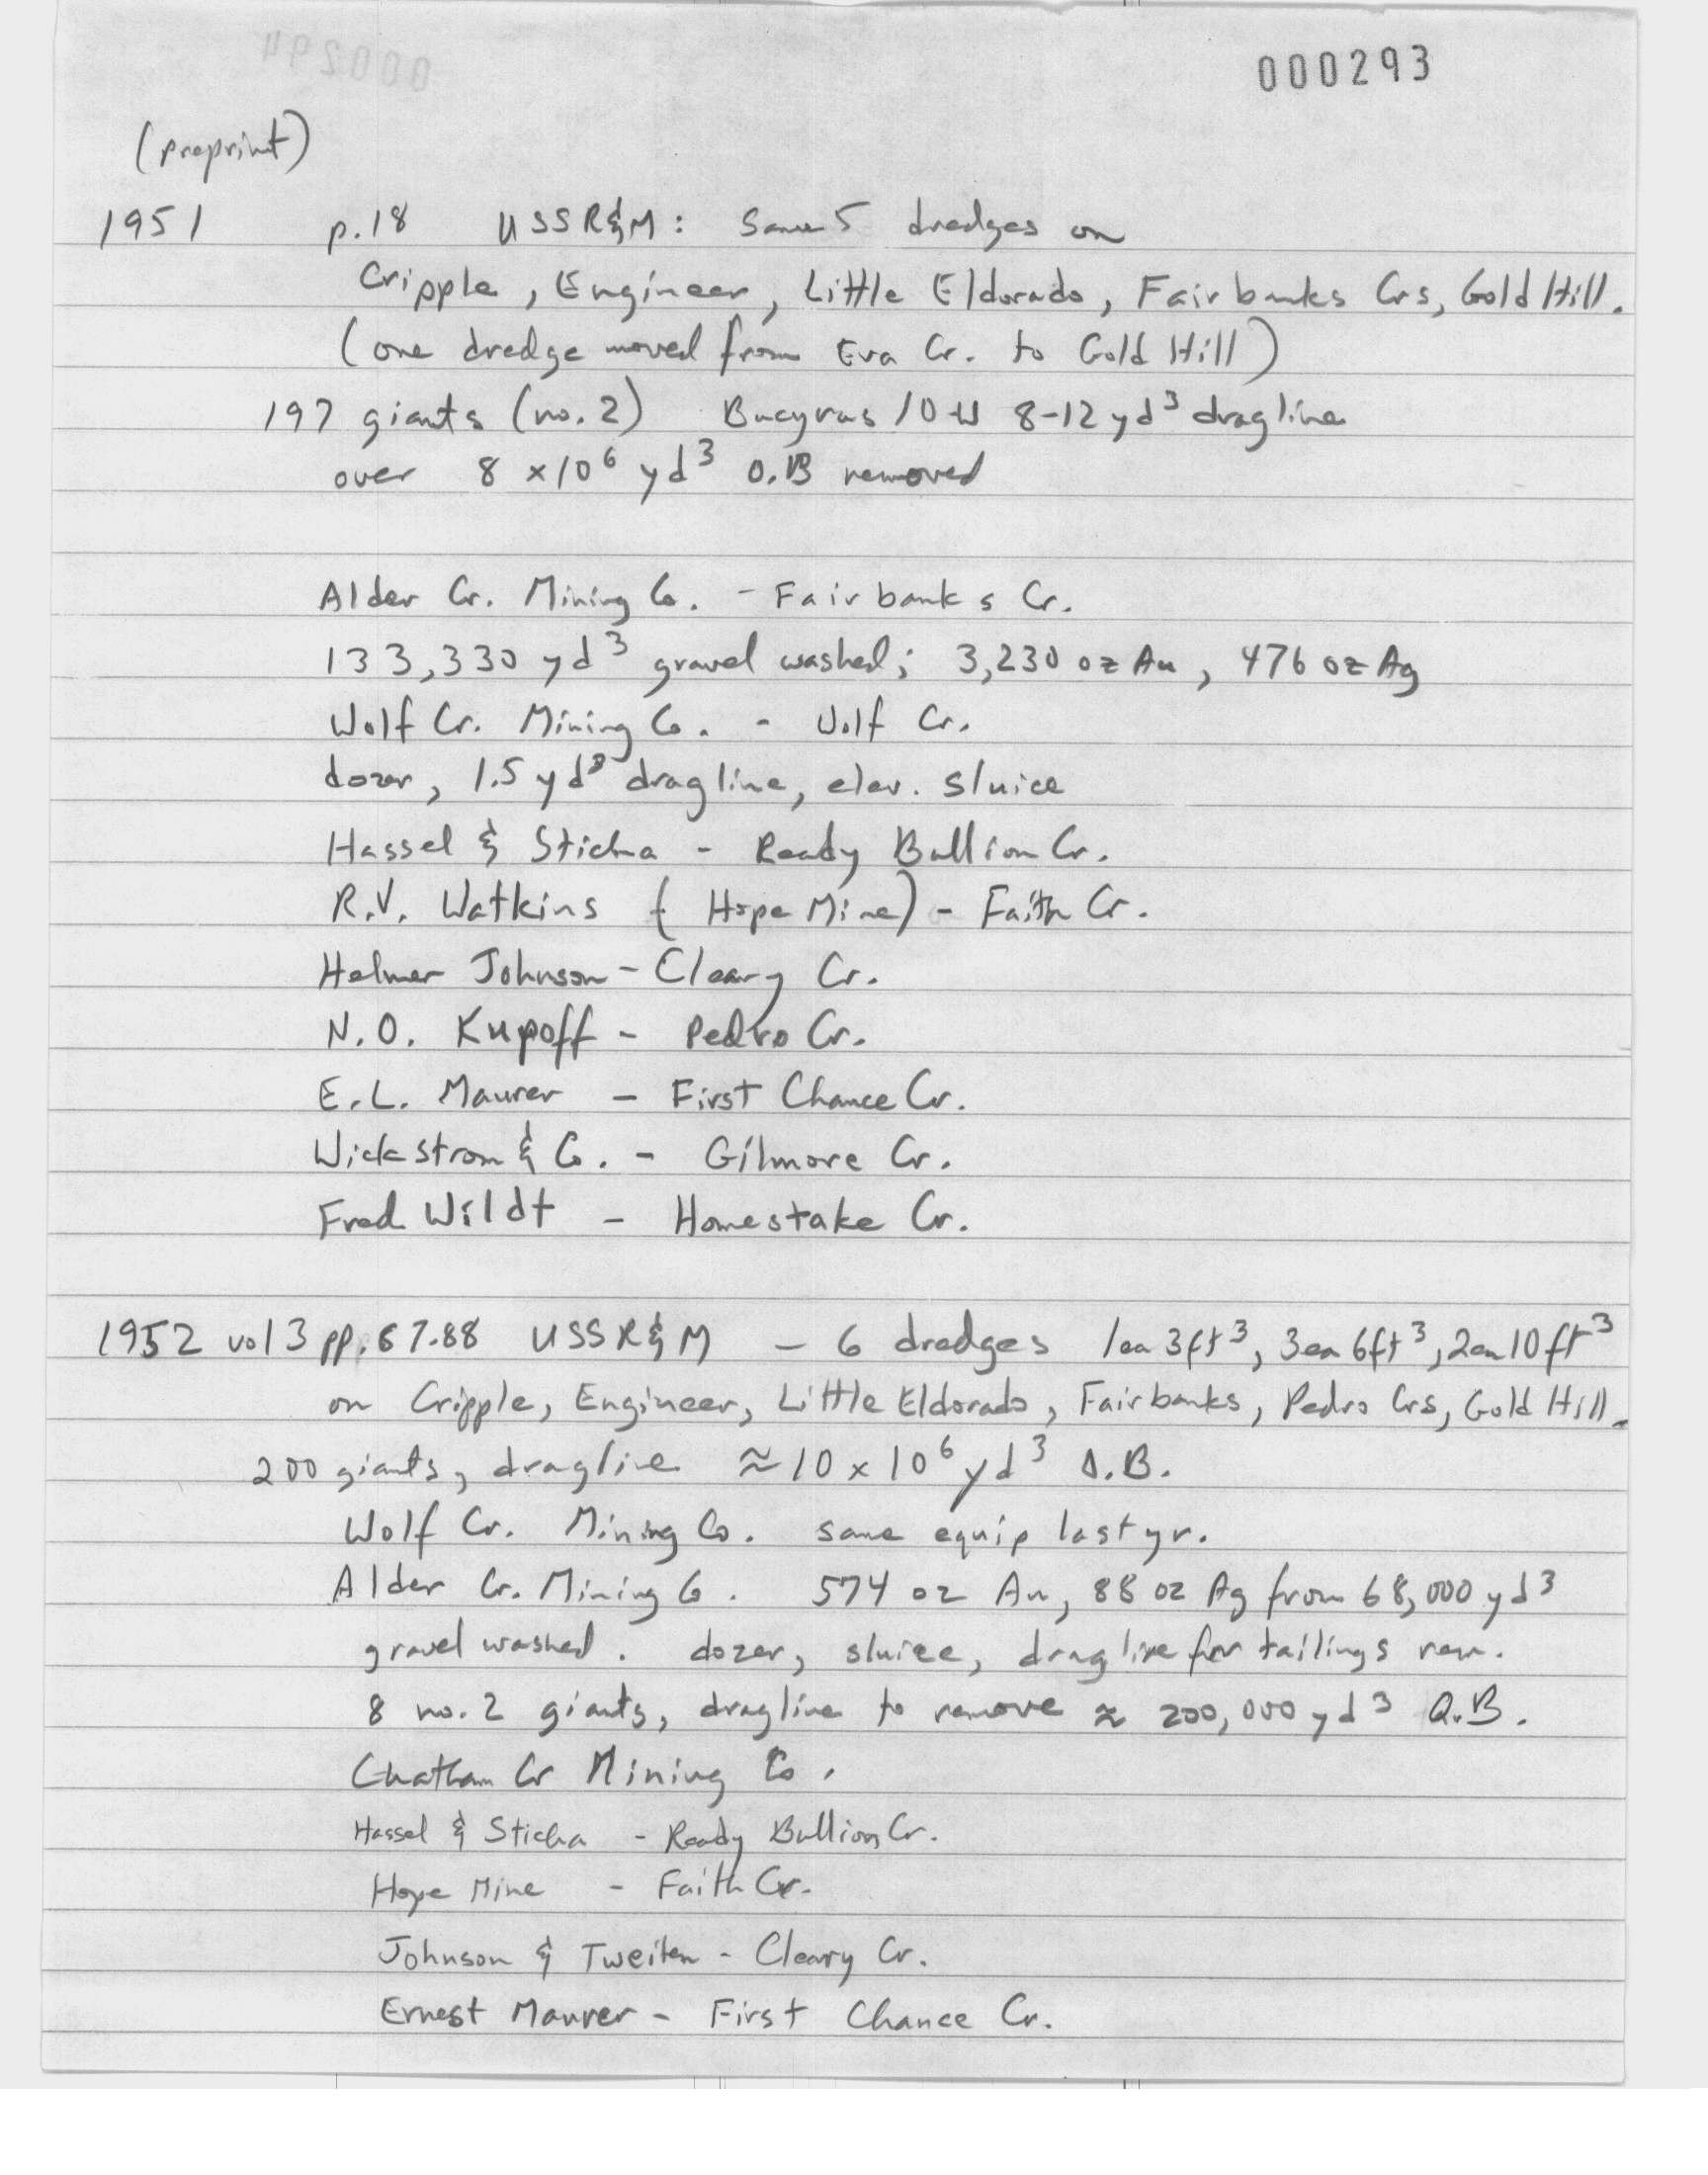 000294
000293
(preprint)
1951 p.18 USSR&M: Same 5 dredges on
Cripple, Engineer, Little Eldorado, Fairbanks Crs, Gold Hill.
(one dredge moved from Eva Cr. to Gold Hill)
197 giants (no. 2) Bucyrus 10-W 8-12 yd³ dragline
over 8 x 10⁶ yd³ O.B removed
Alder Cr. Mining Co. - Fairbanks Cr.
133,330 yd³ gravel washed; 3,230 oz Au, 476 oz Ag
Wolf Cr. Mining Co. - Wolf Cr.
dozer, 1.5 yd³ dragline, elev. sluice
Hassel & Sticha - Ready Bullion Cr.
R.V. Watkins (Hope Mine) - Faith Cr.
Helmer Johnson - Cleary Cr.
N.O. Kupoff - Pedro Cr.
E.L. Maurer - First Chance Cr.
Wickstrom & Co. - Gilmore Cr.
Fred Wildt - Homestake Cr.
1952 vol 3 pp. 87-88 USSR&M - 6 dredges 1ea 3ft³, 3ea 6ft³, 2ea 10ft³
on Cripple, Engineer, Little Eldorado, Fairbanks, Pedro Crs, Gold Hill.
200 giants, dragline ≈ 10 x 10⁶ yd³ O.B.
Wolf Cr. Mining Co. same equip last yr.
Alder Cr. Mining Co. 574 oz Au, 88 oz Ag from 68,000 yd³
gravel washed. dozer, sluice, dragline for tailings rem.
8 no. 2 giants, dragline to remove ≈ 200,000 yd³ O.B.
Chatham Cr Mining Co.
Hassel & Sticha - Ready Bullion Cr.
Hope Mine - Faith Cr.
Johnson & Tweiten - Cleary Cr.
Ernest Maurer - First Chance Cr.